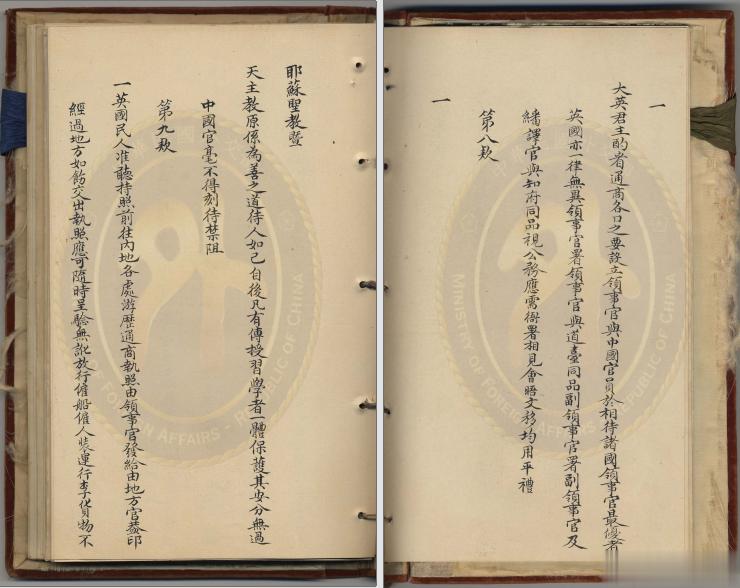 一
大英君主酌看通商各口之要設立領事官與中國官員於相待諸國領事官最優者
英國亦一律無異領事官署領事官與道臺同品副領事官署副領事官及
繙譯官與知府同品視公務應需衙署相見會晤文移均用平禮
第八欵
一
耶蘇聖教暨
天主教原係為善之道待人如己自後凡有傳授習學者一體保護其安分無過
中國官毫不得刻待禁阻
第九欵
一英國民人准聽持照前往內地各處游歷通商執照由領事官發給由地方官葢印
經過地方如飭交出執照應可隨時呈驗無訛放行僱船僱人裝運行李貨物不
MINISTRY OF FOREIGN AFFAIRS - REPUBLIC OF CHINA
FOREIGN AFFAIRS - REPUBLIC OF CHINA